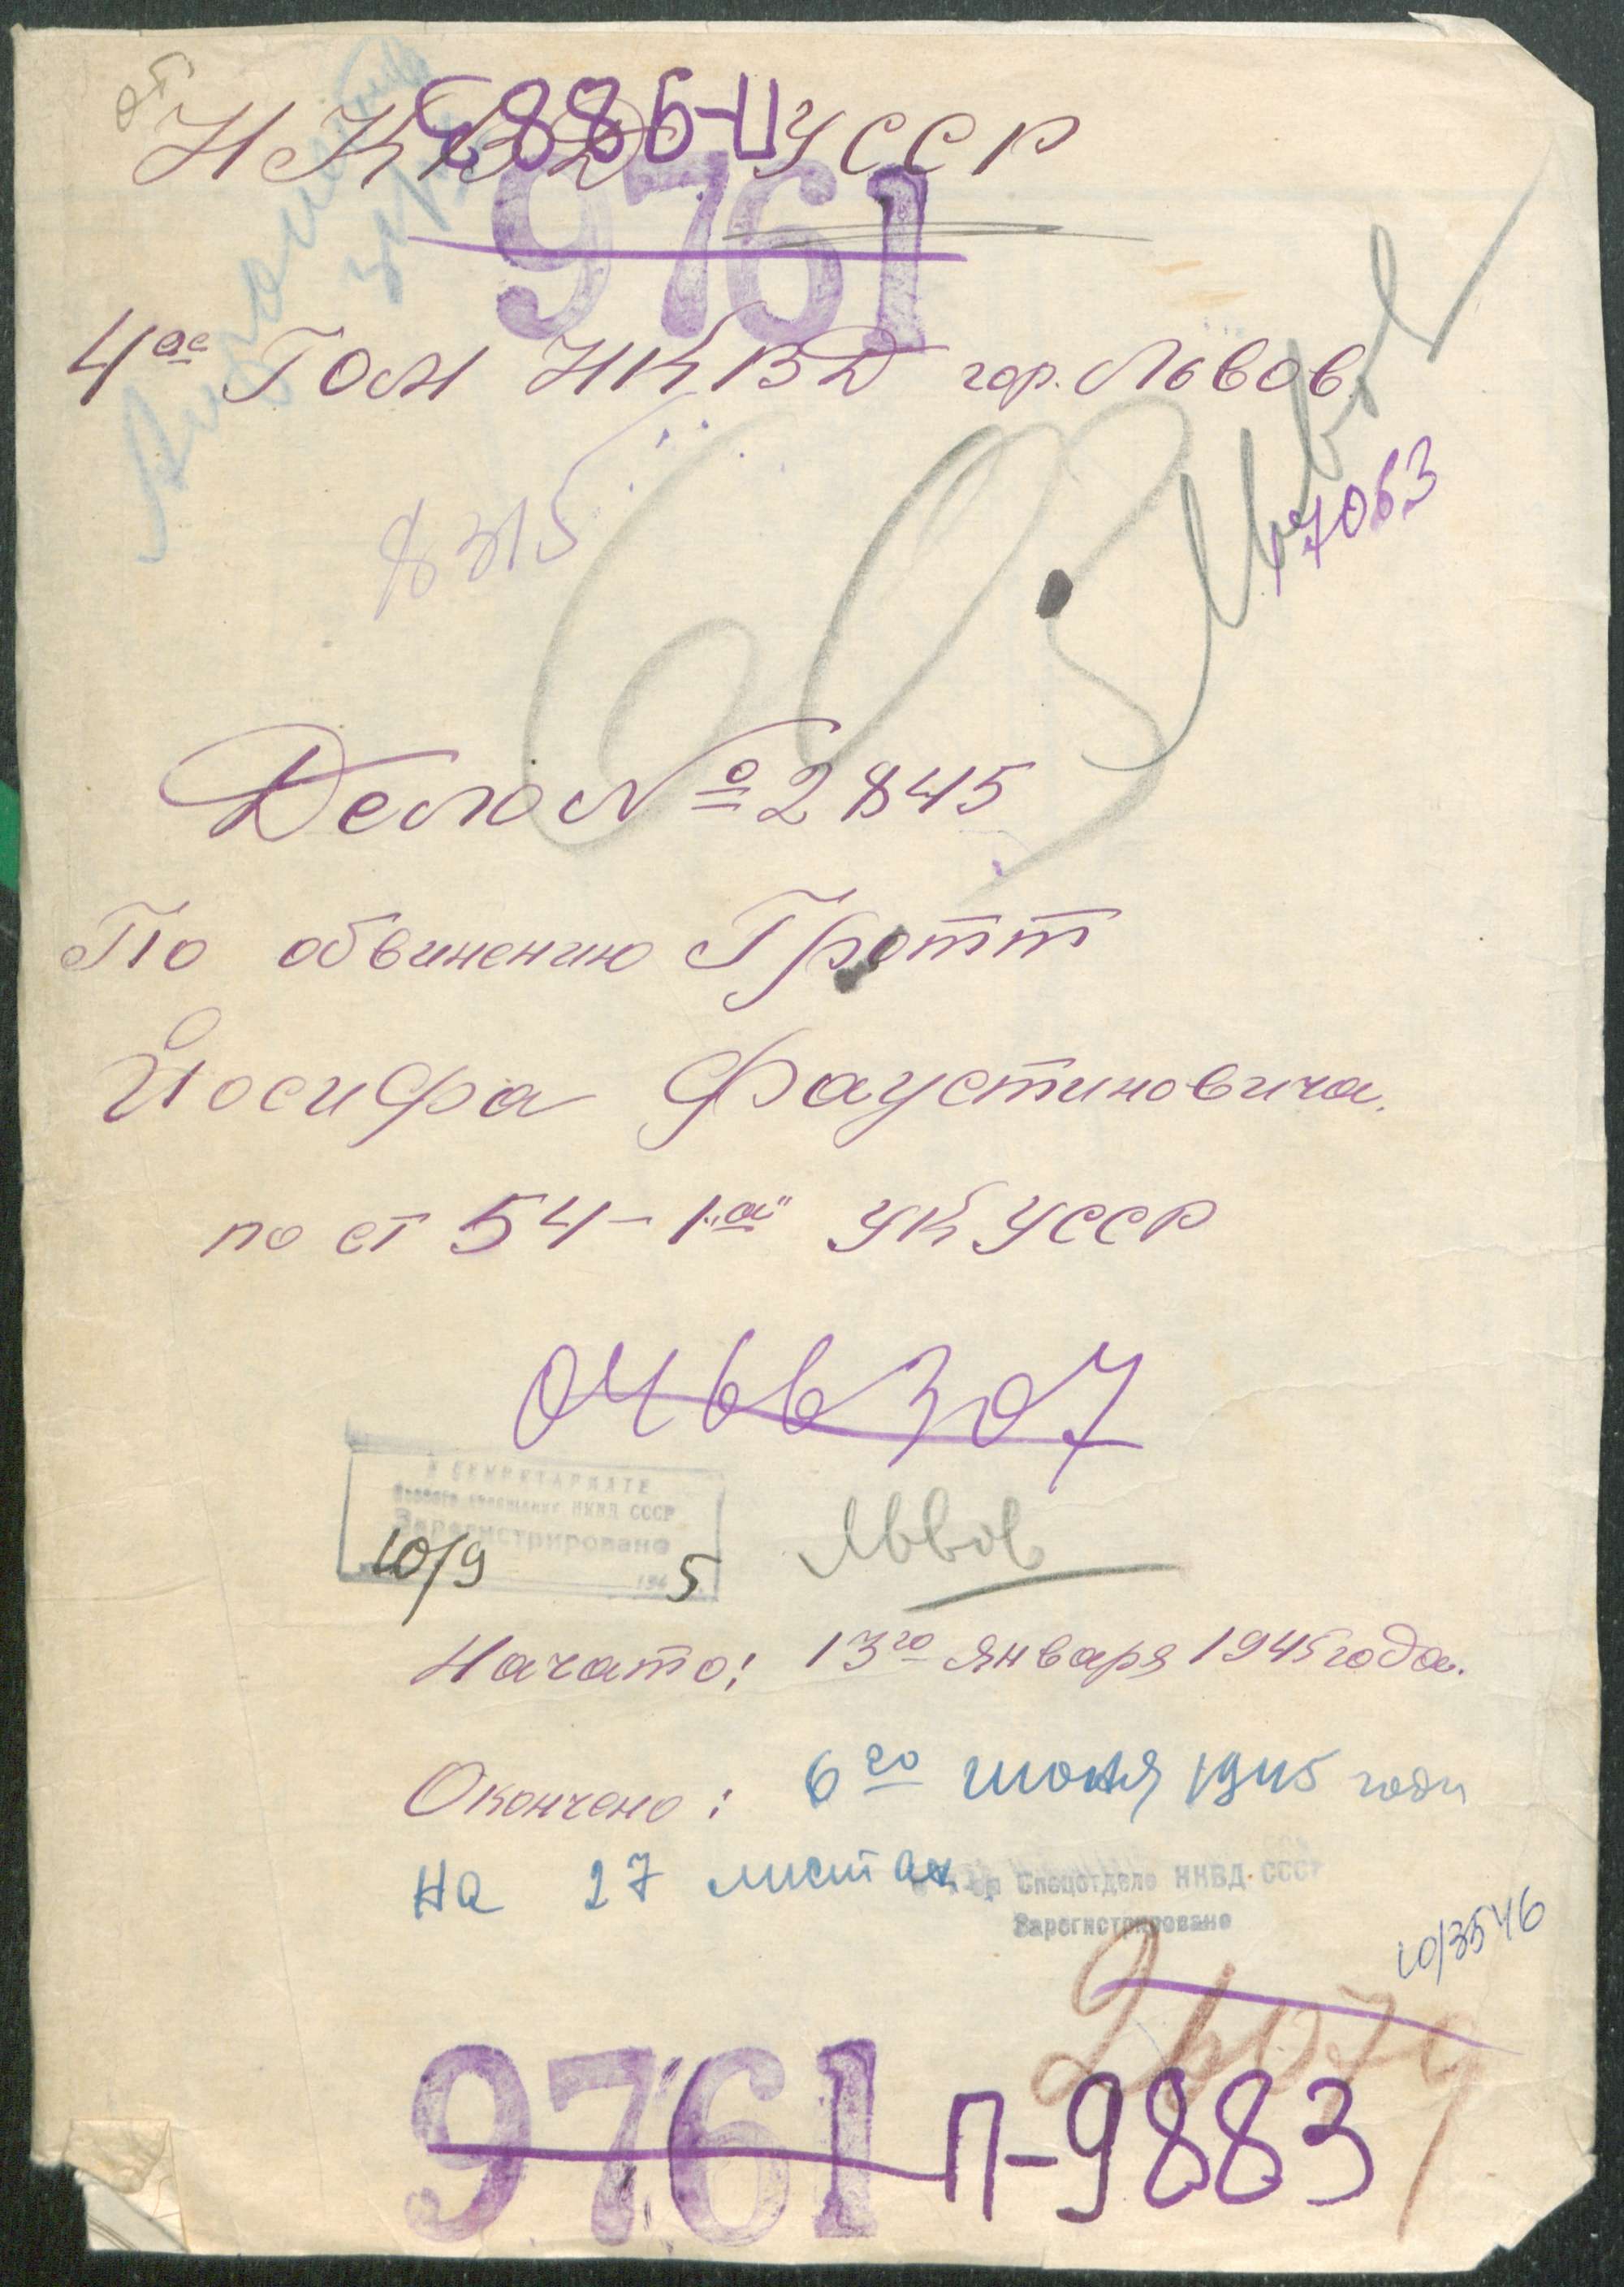 НКВД УССР
П-9883
9761
4ое ГОМ НКВД гор. Львов.
Львов
7063
8315
Дело № 2845
По обвинению Гротт
Йосифа Фаустиновича.
по ст 54-1"а" УК УССР
0466307
В СЕКРЕТАРИАТЕ
Особого совещания НКВД СССР
Зарегистрировано
10/9 194 5
Львов
Начато: 13го января 1945 года.
Окончено: 6го июня 1945 года
на 27 листах
Спецотделе НКВД СССР
Зарегистрировано
10/3546
26079
9761 П-9883